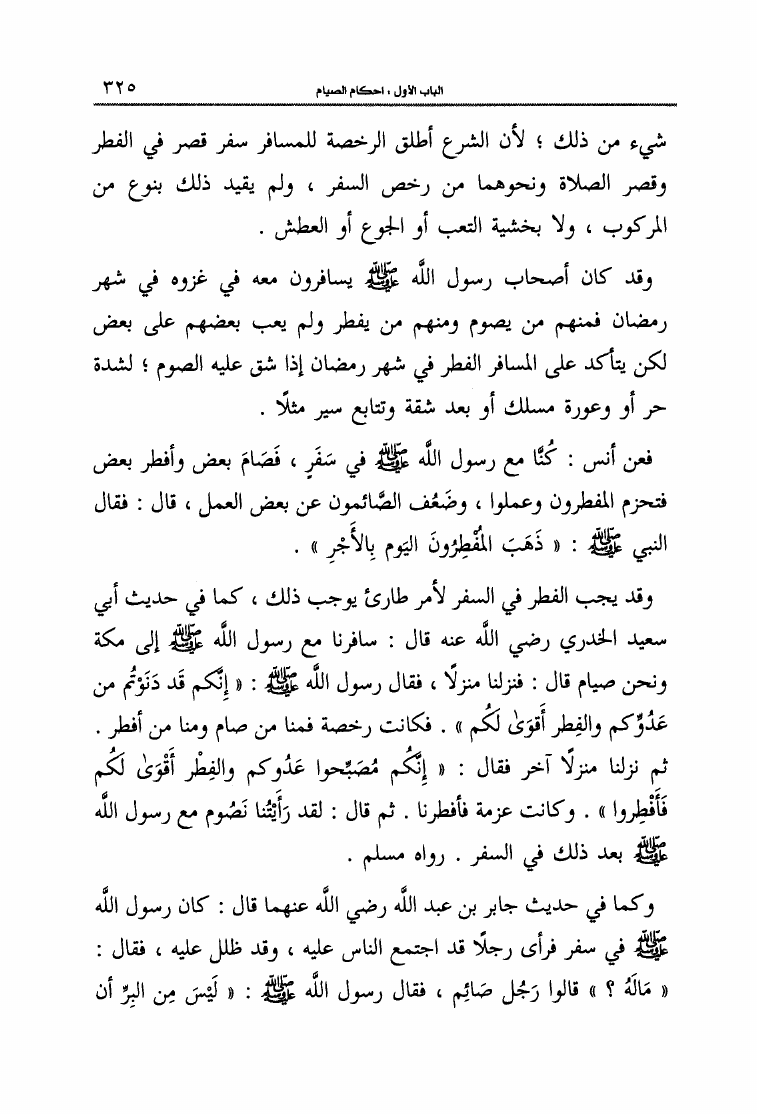 الباب الأول : احكام الصيام ٣٢٥
شيء من ذلك ؛ لأن الشرع أطلق الرخصة للمسافر سفر قصر في الفطر
وقصر الصلاة ونحوهما من رخص السفر ، ولم يقيد ذلك بنوع من
المركوب ، ولا بخشية التعب أو الجوع أو العطش .
وقد كان أصحاب رسول اللَّه ﷺ يسافرون معه في غزوه في شهر
رمضان فمنهم من يصوم ومنهم من يفطر ولم يعب بعضهم على بعض
لكن يتأكد على المسافر الفطر في شهر رمضان إذا شق عليه الصوم ؛ لشدة
حر أو وعورة مسلك أو بعد شقة وتتابع سير مثلًا .
فعن أنس : كُنَّا مع رسول اللَّه ﷺ في سَفَرٍ ، فَصَامَ بعض وأفطر بعض
فتحزم المفطرون وعملوا ، وضَعُف الصَّائمون عن بعض العمل ، قال : فقال
النبي ﷺ : « ذَهَبَ المُفْطِرُونَ اليَوم بِالأَجْرِ » .
وقد يجب الفطر في السفر لأمر طارئ يوجب ذلك ، كما في حديث أبي
سعيد الخدري رضي اللَّه عنه قال : سافرنا مع رسول اللَّه ﷺ إلى مكة
ونحن صيام قال : فنزلنا منزلًا ، فقال رسول اللَّه ﷺ : « إِنَّكم قَد دَنَوْتُم من
عَدُوِّكم والفِطر أَقوَىٰ لَكُم » . فكانت رخصة فمنا من صام ومنا من أفطر .
ثم نزلنا منزلًا آخر فقال : « إِنَّكُم مُصَبِّحوا عَدُوكم والفِطْر أَقْوَىٰ لَكُم
فَأَفْطِروا » . وكانت عزمة فأفطرنا . ثم قال : لقد رَأَيْتُنا نَصُوم مع رسول اللَّه
ﷺ بعد ذلك في السفر . رواه مسلم .
وكما في حديث جابر بن عبد اللَّه رضي اللَّه عنهما قال : كان رسول اللَّه
ﷺ في سفر فرأى رجلًا قد اجتمع الناس عليه ، وقد ظلل عليه ، فقال :
« مَالَهُ ؟ » قالوا رَجُل صَائِم ، فقال رسول اللَّه ﷺ : « لَيْسَ مِن البِرِّ أن